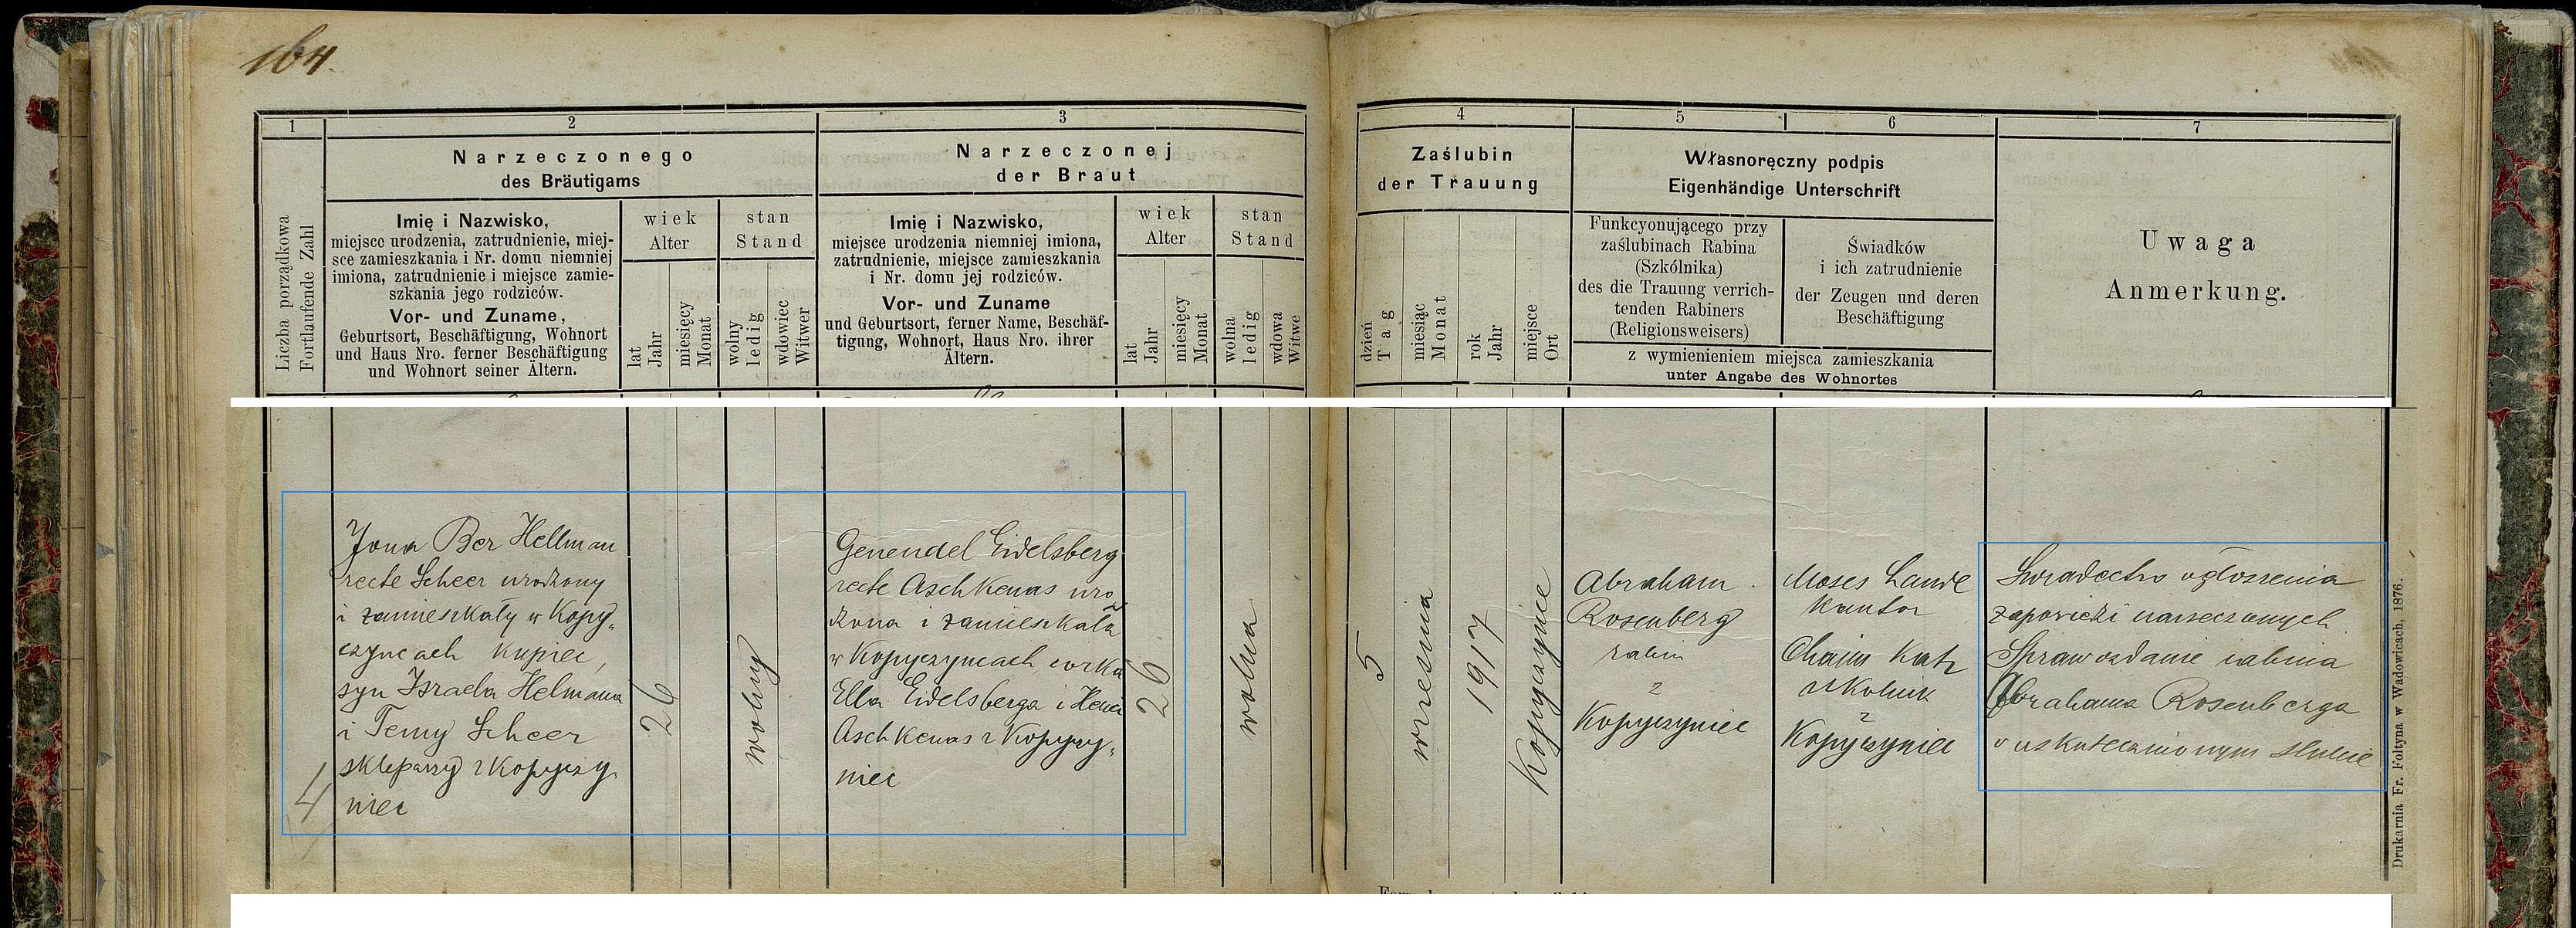 164.
1
2
3
4
5
6
7
Liczba porządkowa
Fortlaufende Zahl
Narzeczonego
des Bräutigams
Imię i Nazwisko,
miejsce urodzenia, zatrudnienie, miej-
sce zamieszkania i Nr. domu niemniej
imiona, zatrudnienie i miejsce zamie-
szkania jego rodziców.
Vor- und Zuname,
Geburtsort, Beschäftigung, Wohnort
und Haus Nro. ferner Beschäftigung
und Wohnort seiner Ältern.
wiek
Alter
lat
Jahr
miesięcy
Monat
stan
Stand
wolny
ledig
wdowiec
Witwer
Narzeczonej
der Braut
Imię i Nazwisko,
miejsce urodzenia niemniej imiona,
zatrudnienie, miejsce zamieszkania
i Nr. domu jej rodziców.
Vor- und Zuname
und Geburtsort, ferner Name, Beschäf-
tigung, Wohnort, Haus Nro. ihrer
Ältern.
wiek
Alter
lat
Jahr
miesięcy
Monat
stan
Stand
wolna
ledig
wdowa
Witwe
Zaślubin
der Trauung
dzień
Tag
miesiąc
Monat
rok
Jahr
miejsce
Ort
Własnoręczny podpis
Eigenhändige Unterschrift
Funkcyonującego przy
zaślubinach Rabina
(Szkólnika)
des die Trauung verrich-
tenden Rabiners
(Religionsweisers)
Świadków
i ich zatrudnienie
der Zeugen und deren
Beschäftigung
z wymienieniem miejsca zamieszkania
unter Angabe des Wohnortes
Uwaga
Anmerkung.
4
Jona Ber Hellman
recte Scheer urodzony
i zamieszkały w Kopy„
czyncach kupiec,
syn Israela Helmana
i Temy Scheer
skleparzy z Kopyczy
niec
26
wolny
Genendel Eidelsberg
recte Aschkenas uro
dzona i zamieszkała
w Kopyczyncach, corka
Ella Eidelsberga i Henci
Aschkenas z Kopyczy„
niec
26
wolna
5
wrzesnia
1917
Kopyczynce
Abraham
Rosenberg
rabin
z
Kopyczyniec
Moses Lande
Kantor
Chaim Katz
szkolnik
z
Kopyczyniec
Swiadectwo ogłoszenia
zapowiedzi narzeczonych
Sprawozdanie rabina
Abrahama Rosenberga
o uskutecznionym slubie
Drukarnia Fr. Foltyna w Wadowicach, 1876.